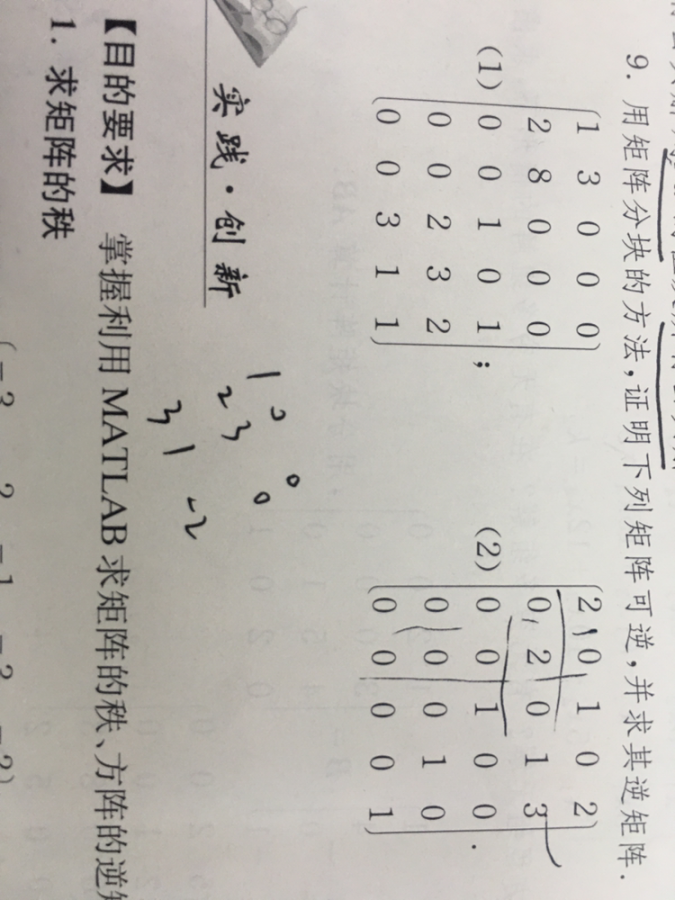 9. 用矩阵分块的方法,证明下列矩阵可逆,并求其逆矩阵.
(1)
1 3 0 0 0
2 8 0 0 0
0 0 1 0 1
0 0 2 3 2
0 0 3 1 1
;
(2)
2 0 1 0 2
0 2 0 1 3
0 0 1 0 0
0 0 0 1 0
0 0 0 0 1
.
1 0 0
2 3 0
3 1 -2
实践·创新
【目的要求】 掌握利用 MATLAB 求矩阵的秩、方阵的逆
1. 求矩阵的秩
-3 2 -1 -3 -2